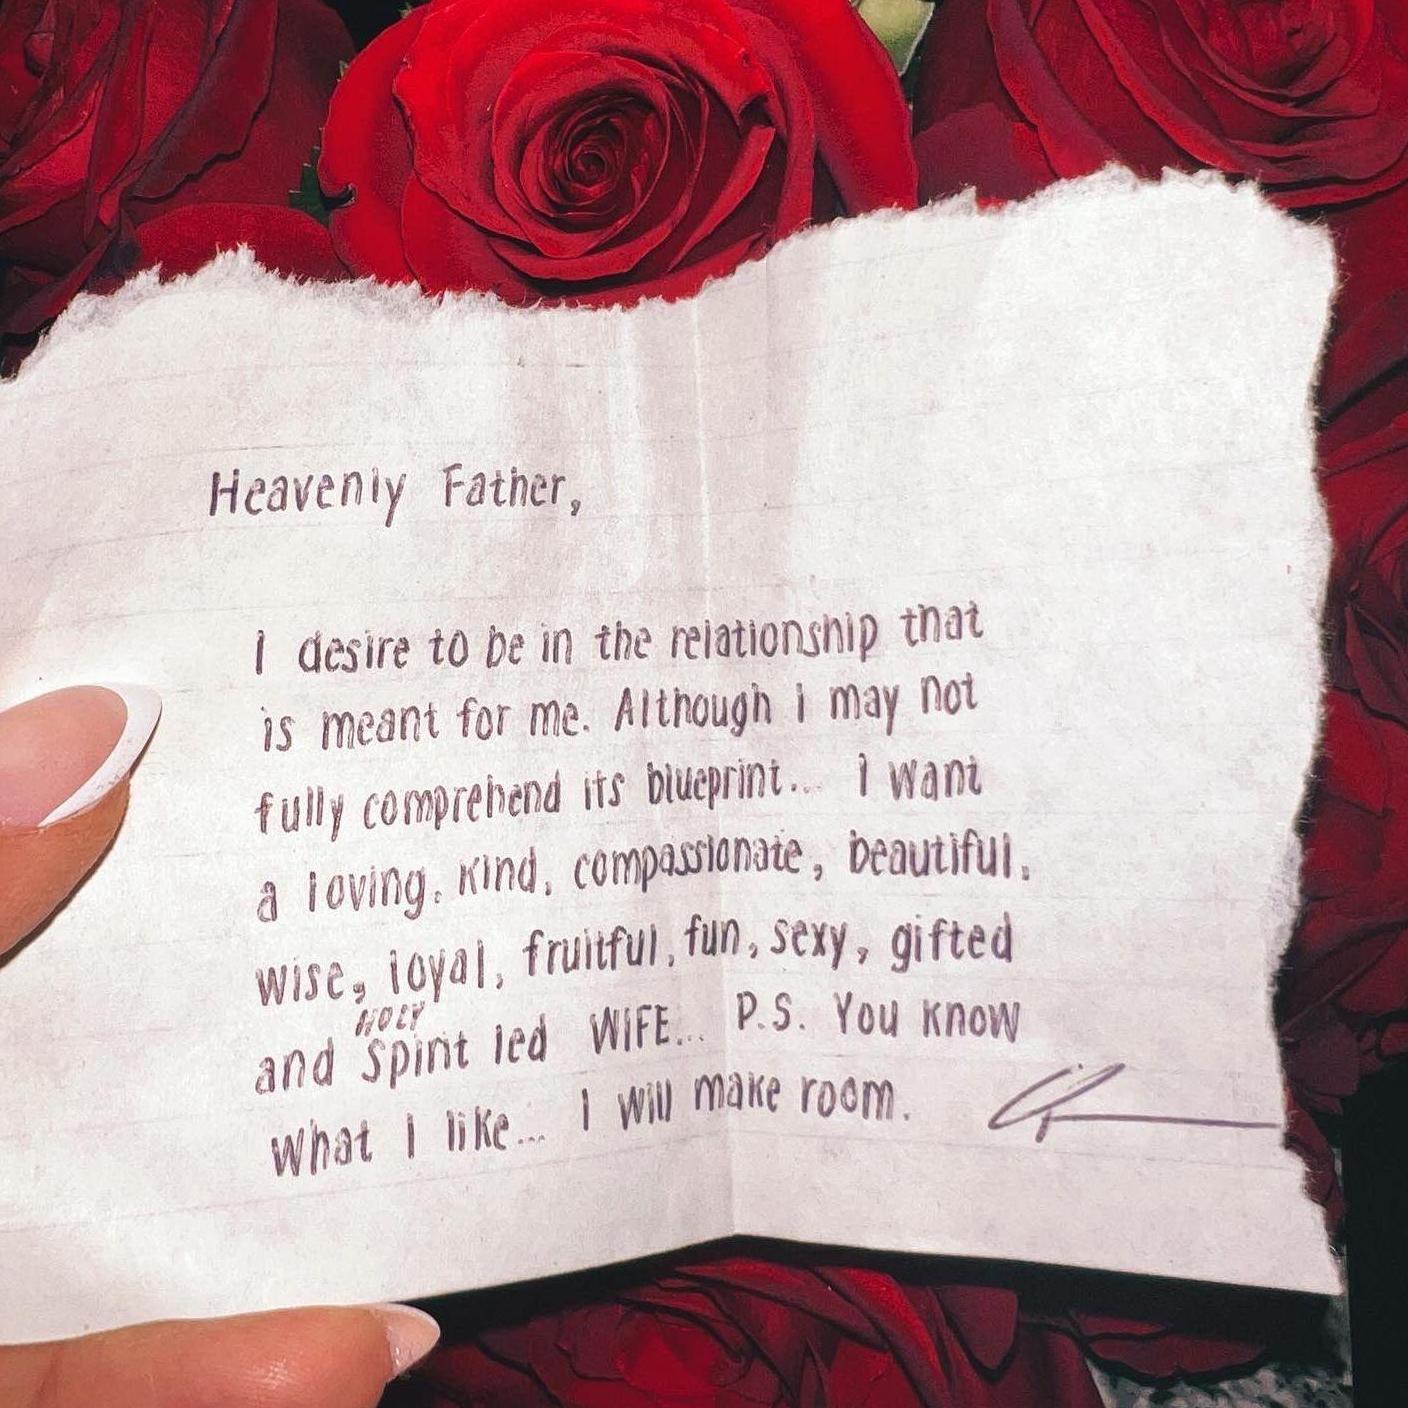 Heavenly Father,
I desire to be in the relationship that
is meant for me. Although I may not
fully comprehend its blueprint... I want
a loving, kind, compassionate, beautiful,
wise, loyal, fruitful, fun, sexy, gifted
HOLY
and Spirit led WIFE... P.S. You know
what I like... I will make room.